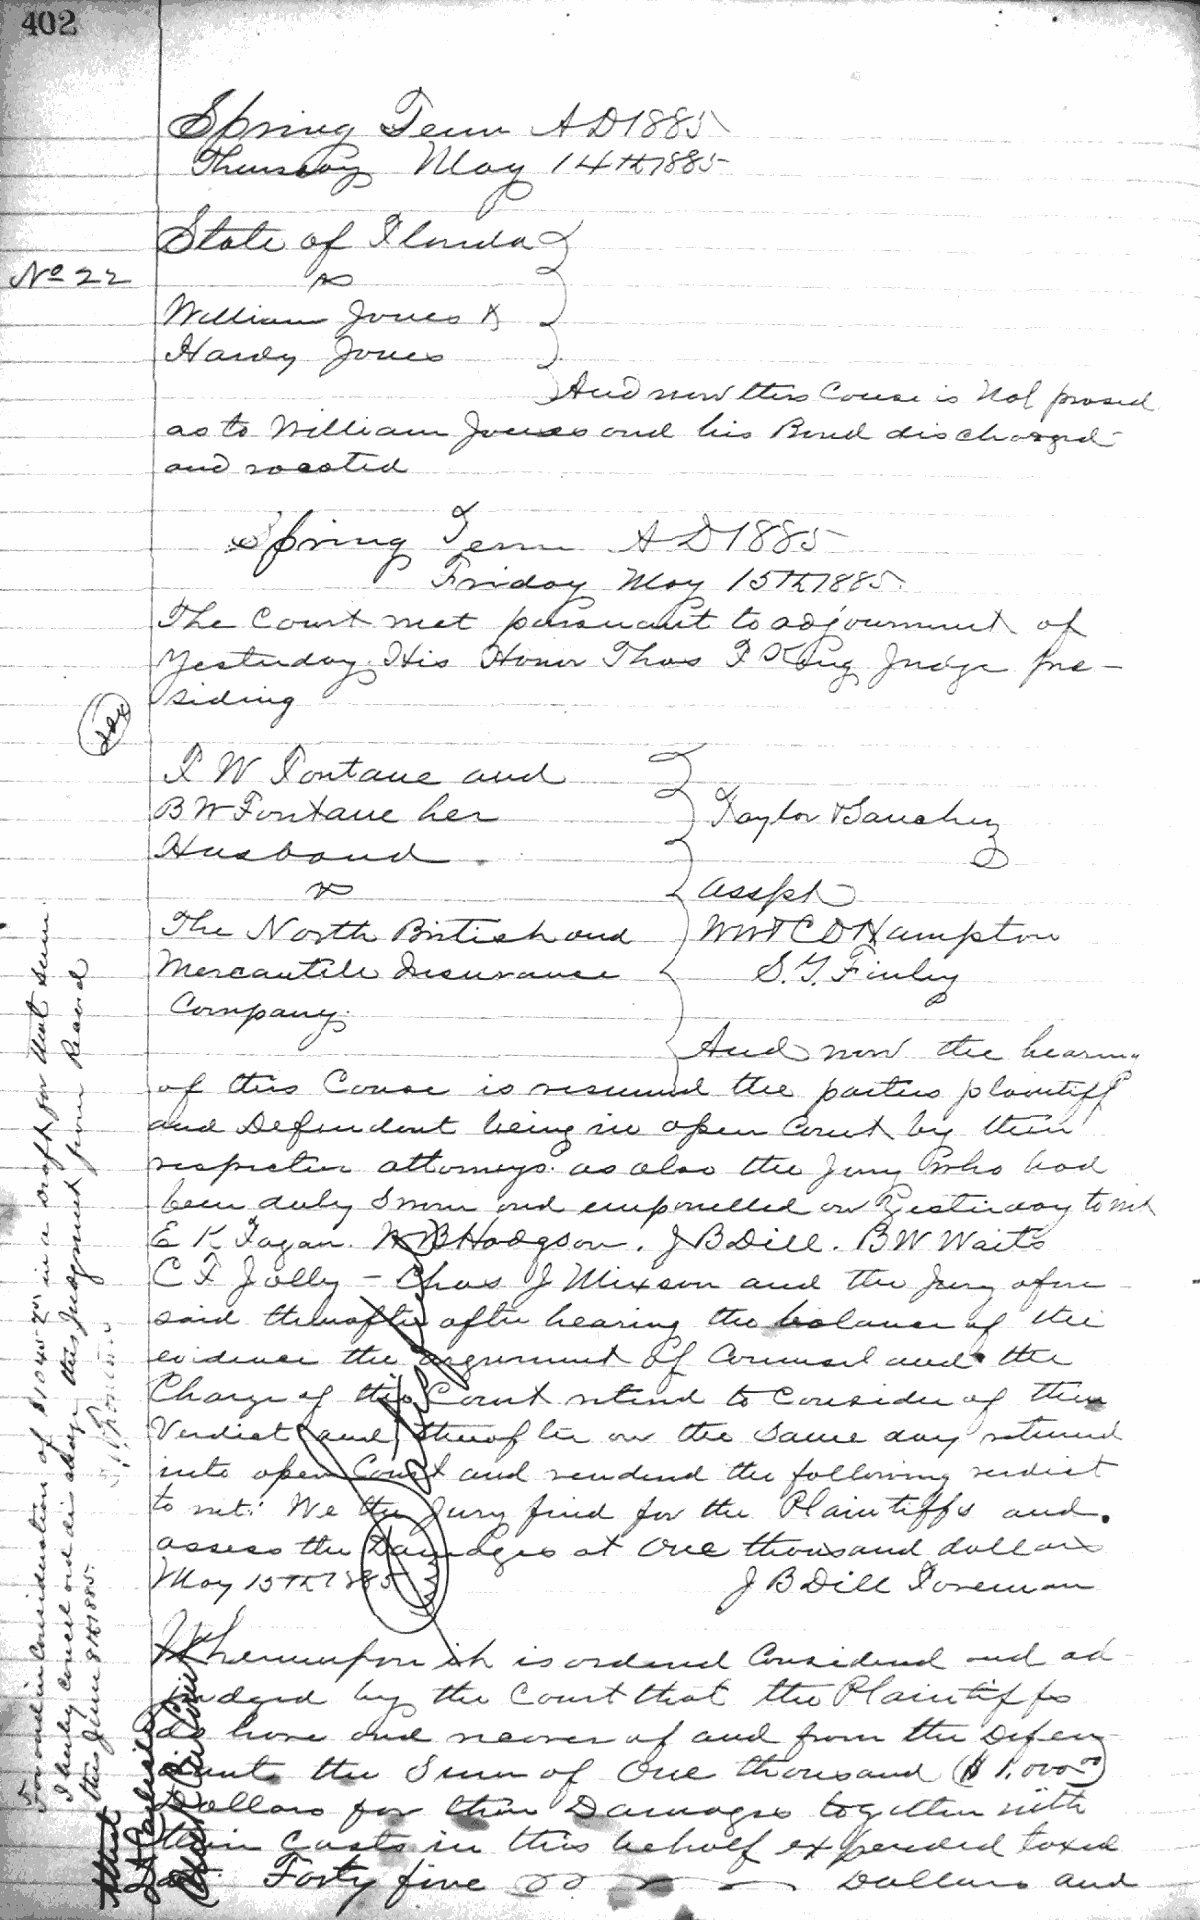 402
Spring Term AD 1885
Thursday May 14th 1885
State of Florida
No 22
vs
William Jones &
Hardy Jones
And now this Cause is Nol prosed
as to William Jones and his Bond discharged
and vacated
Spring Term AD 1885
Friday May 15th 1885.
The Court met pursuant to adjournment of
Yesterday. His Honor Thos F King Judge pre-
siding
F W Fontane and
B W Fontane her
Husband
vs
The North British and
Mercantile Insurance
Company.
Taylor & Sanchez
Asspt
Wm & C D Hampton
S. Y. Finley
And now the hearing
of this Cause is resumed the parties plaintiff
and Defendant being in open Court by their
respective attorneys. as also the Jury who had
been duly Sworn and empanelled on Yesterday to wit
E K Fagan. W B Hodgson. J B Dill. B W Waits
C F Jolly - Chas J Mixson and the Jury afore
said thereafter after hearing the balance of the
evidence the argument of Counsel and the
Charge of the Court retired to Consider of their
Verdict and thereafter on the Same day returned
into open Court and rendered the following verdict
to wit: We the Jury find for the Plaintiffs and
assess the Damages at One thousand dollars
May 15th 1885
J B Dill Foreman
Whereupon it is ordered Considered and ad
judged by the Court that the Plaintiffs
do have and recover of and from the Defen
dant the Sum of One thousand ($1,000.00)
Dollars for their Damages together with
their Costs in this behalf expended taxed
at Forty five Dollars and
For and in Consideration of $1045 in a draft for that sum
I hereby cancel and discharge this Judgment from Record
this June 8th 1885.
Attest